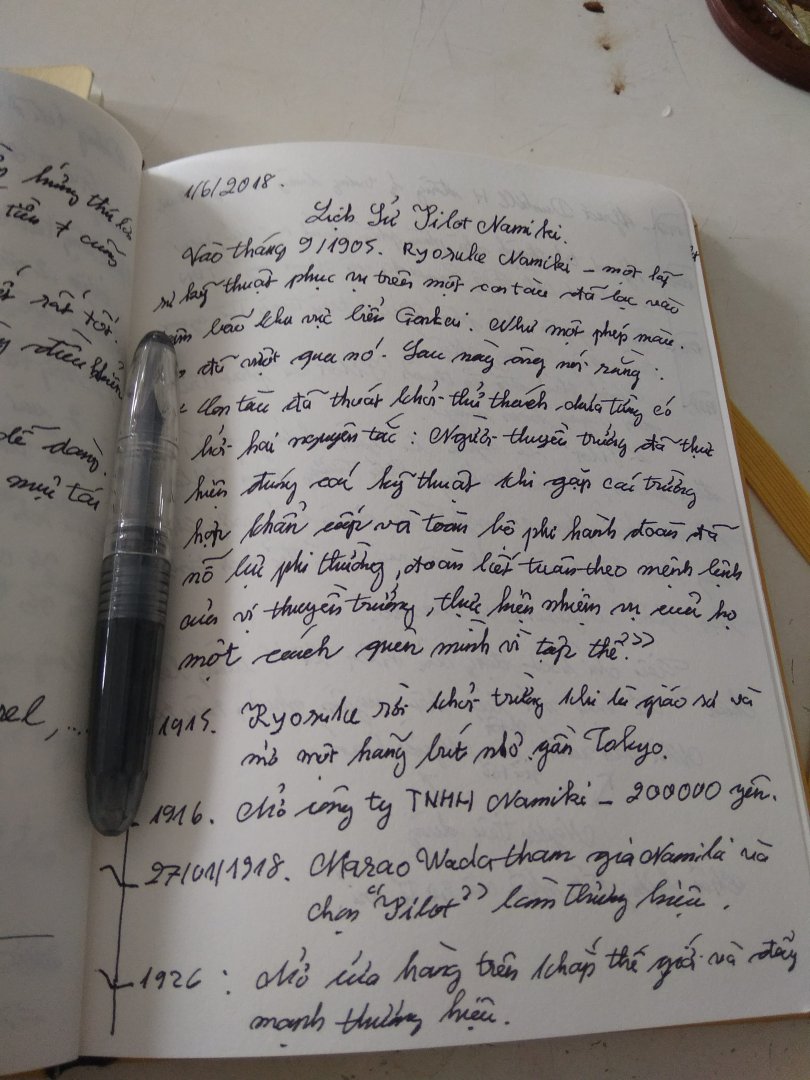 hứng thú
tiễu + cuống
rất tốt.
điều khiển
dễ dàng.
mực tái
1/6/2018.
Lịch Sử Pilot Namiki.
Vào tháng 9/1905. Ryosuke Namiki – một kỹ
sư kỹ thuật phục vụ trên một con tàu đã lạc vào
bão khu vực biển Genkai. Như một phép màu.
đã vượt qua nó. Sau này ông nói rằng:
Con tàu đã thoát khỏi thử thách chưa từng có
bởi hai nguyên tắc: Người thuyền trưởng đã thực
hiện đúng cái kỹ thuật khi gặp cái trường
hợp khẩn cấp và toàn bộ phi hành đoàn đã
nỗ lực phi thường, đoàn kết tuân theo mệnh lệnh
của vị thuyền trưởng, thực hiện nhiệm vụ của họ
một cách quên mình vì tập thể.”
1915. Ryosuke rời khỏi trường khi là giáo sư và
mở một hãng bút nhỏ gần Tokyo.
1916. Mở công ty TNHH Namiki – 200000 yên.
27/01/1918. Masao Wada tham gia Namiki và
chọn “Pilot” làm thương hiệu.
1926: Mở cửa hàng trên khắp thế giới và đẩy
mạnh thương hiệu.